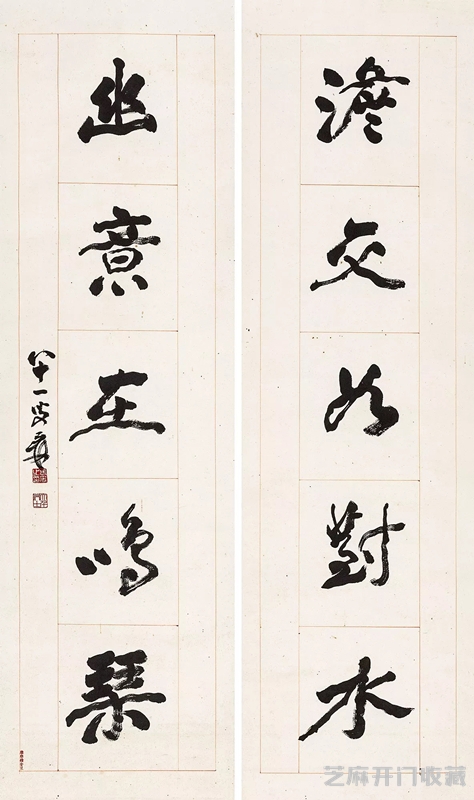 澹交如對水
幽意在鳴琹
八十一叟爰
芝麻开门收藏